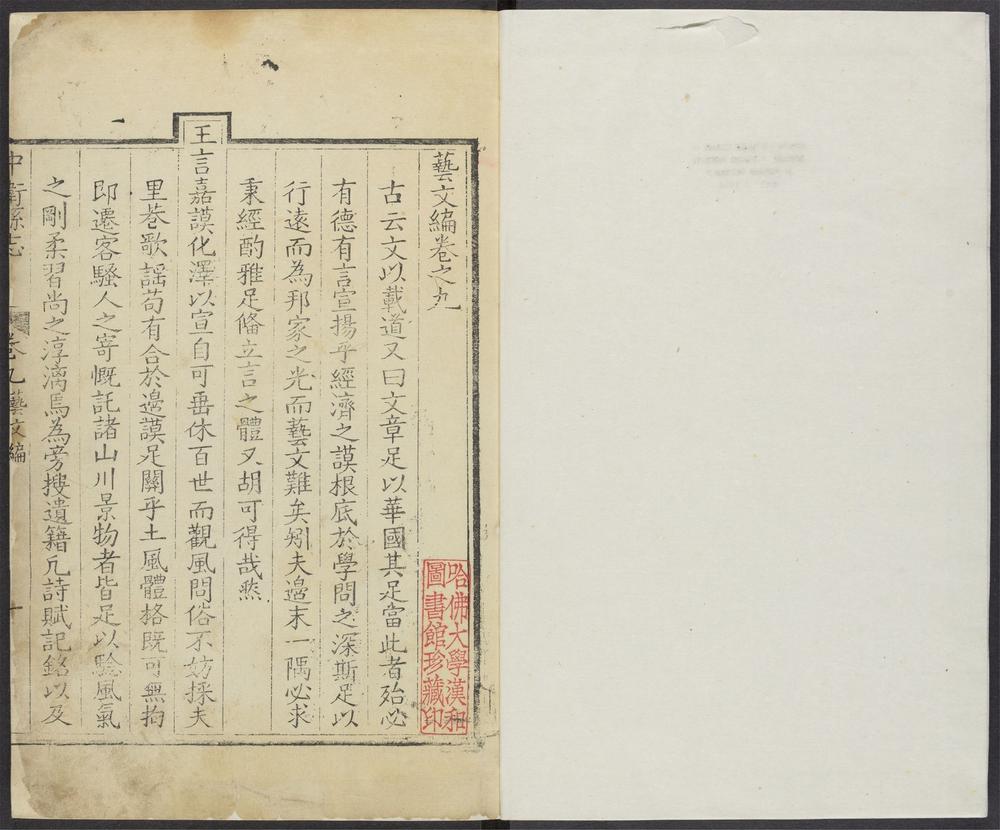 藝文編卷之九
古云文以載道又曰文章足以華國其足當此者殆必
有德有言宣揚乎經濟之謨根底於學問之深斯足以
行遠而為邦家之光而藝文難矣矧夫邊末一隅必求
秉經酌雅足俻立言之體又胡可得哉然
王言嘉謨化澤以宣自可垂休百世而觀風問俗不妨採夫
里巷歌謡苟有合於邊謨足關乎土風體格既可無拘
即遷客騷人之寄慨託諸山川景物者皆足以驗風氣
之剛柔習尚之淳漓焉為旁搜遺籍凡詩賦記銘以及
中衛縣志
卷九藝文編
一
哈佛大學漢和
圖書館珍藏印